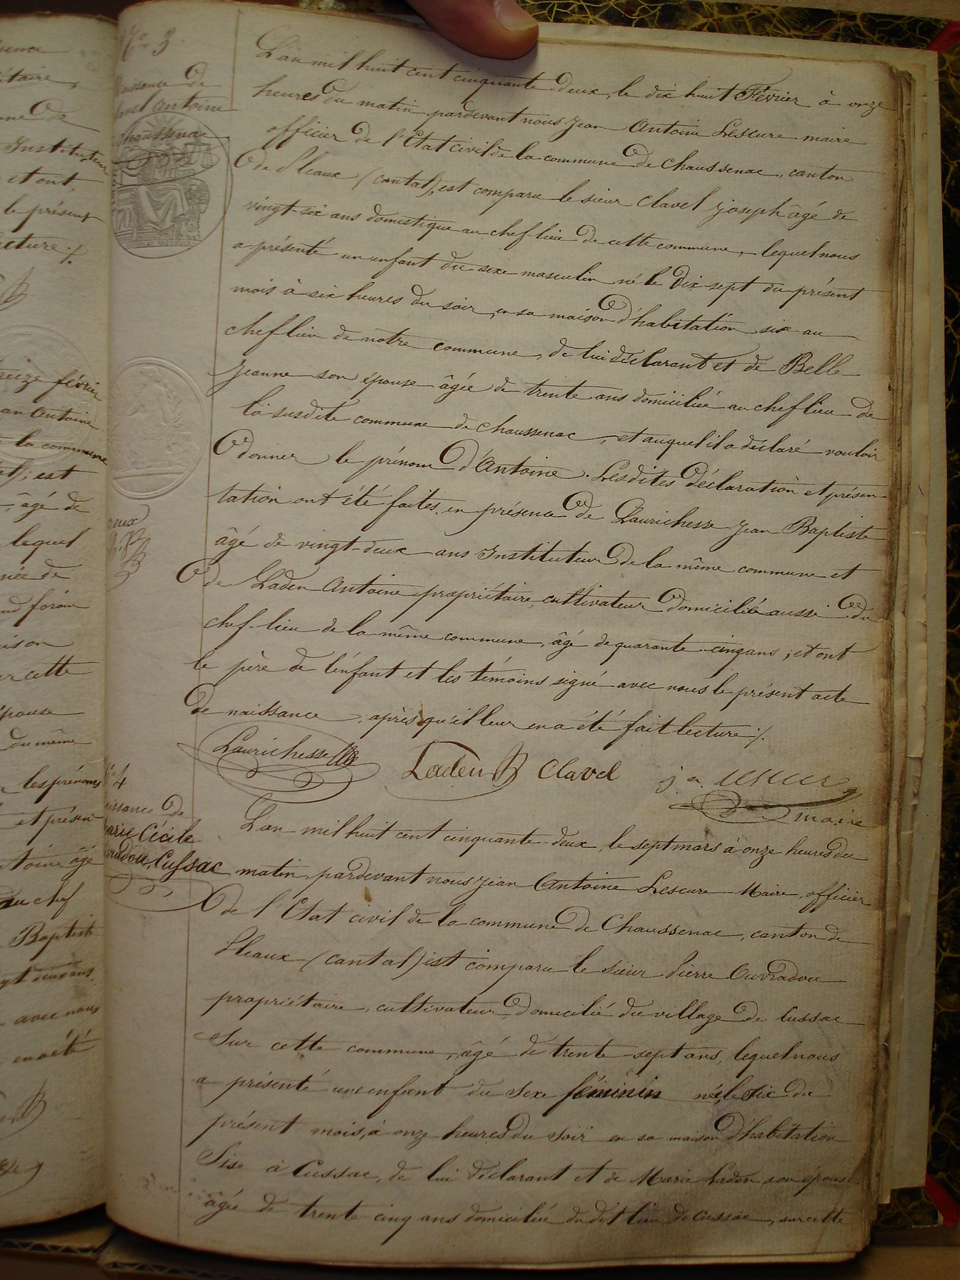 N° 3
Naissance de
Clavel Antoine
Chaussenac
L'an mil huit cent cinquante deux, le dix huit Février à onze
heures du matin pardevant nous Jean Antoine Lescure maire
officier de l'Etat civil de la commune de Chaussenac, canton
de Pleaux (Cantal), est comparu le sieur Clavel Joseph âgé de
vingt-six ans domestique au chef lieu de cette commune, lequel nous
a présenté un enfant du sexe masculin né le dix sept du présent
mois à six heures du soir, en sa maison d'habitation sise au
chef lieu de notre commune, de lui déclarant et de Belle
Jeanne son épouse âgée de trente ans domiciliée au chef lieu de
la susdite commune de Chaussenac, et auquel il a déclaré vouloir
donner le prénom d'Antoine. Lesdites déclaration et présen-
tation ont été faites en présence de Laurichesse Jean Baptiste
âgé de vingt-deux ans Instituteur de la même commune et
de Laden Antoine propriétaire cultivateur domicilié aussi du
chef-lieu de la même commune, âgé de quarante cinq ans, et ont
le père de l'enfant et les témoins signé avec nous le présent acte
de naissance, après qu'il leur en a été fait lecture ./.
Laurichesse JB Laden Clavel j a Lescure
maire
N° 4
Naissance de
Marie Cécile
Ouvradou Cussac
L'an mil huit cent cinquante deux, le sept mars à onze heures du
matin, pardevant nous Jean Antoine Lescure Maire, officier
de l'Etat civil de la commune de Chaussenac, canton de
Pleaux (Cantal) est comparu le sieur Pierre Ouvradou
propriétaire, cultivateur domicilié du village de Cussac
sur cette commune, âgé de trente-sept ans, lequel nous
a présenté un enfant du sexe féminin né le six du
présent mois, à onze heures du soir en sa maison d'habitation
sise à Cussac, de lui déclarant et de Marie Laden son épouse
âgée de trente cinq ans domiciliée du dit lieu de Cussac, sur cette